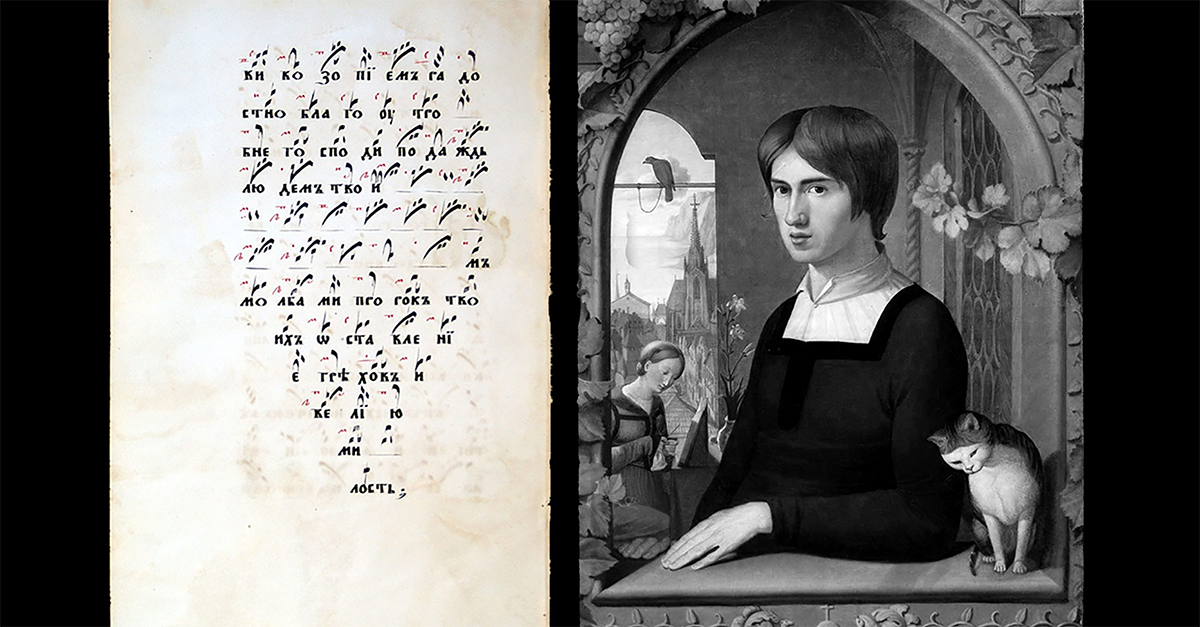 ви во зо пї емъ ра до
стно бла го оу тро
бне го спо ди по да ждь
лю демъ тво и
мъ
мо лба ми про рокъ тво
ихъ ѡ ста вле нї
е грѣ ховъ и
ве лї ю
ми
лость;